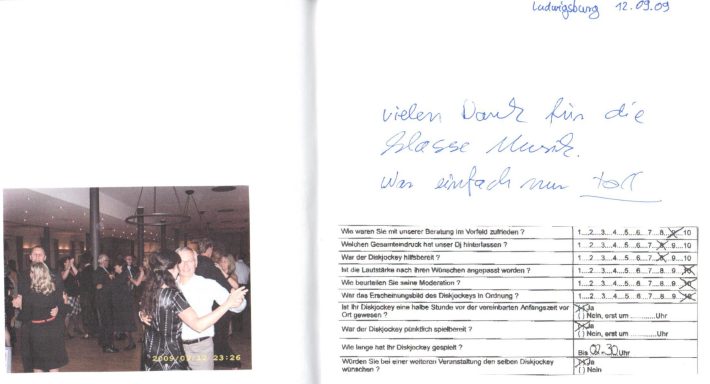 Ludwigsburg 12.09.09
vielen Dank für die
klasse Musik.
War einfach nur toll
2009/09/12 23:26
Wie waren Sie mit unserer Beratung im Vorfeld zufrieden ? 1...2...3...4...5...6...7...8...9...10
Welchen Gesamteindruck hat unser Dj hinterlassen ? 1...2...3...4...5...6...7...8...9...10
War der Diskjockey hilfsbereit ? 1...2...3...4...5...6...7...8...9...10
Ist die Lautstärke nach Ihren Wünschen angepasst worden ? 1...2...3...4...5...6...7...8...9...10
Wie beurteilen Sie seine Moderation ? 1...2...3...4...5...6...7...8...9...10
War das Erscheinungsbild des Diskjockeys in Ordnung ? 1...2...3...4...5...6...7...8...9...10
Ist Ihr Diskjockey eine halbe Stunde vor der vereinbarten Anfangszeit vor (X) Ja
Ort gewesen ? ( ) Nein, erst um ............Uhr
War der Diskjockey pünktlich spielbereit ? (X) Ja
( ) Nein, erst um ............Uhr
Wie lange hat Ihr Diskjockey gespielt ? Bis 02.30 Uhr
Würden Sie bei einer weiteren Veranstaltung den selben Diskjockey (X) Ja
wünschen ? ( ) Nein